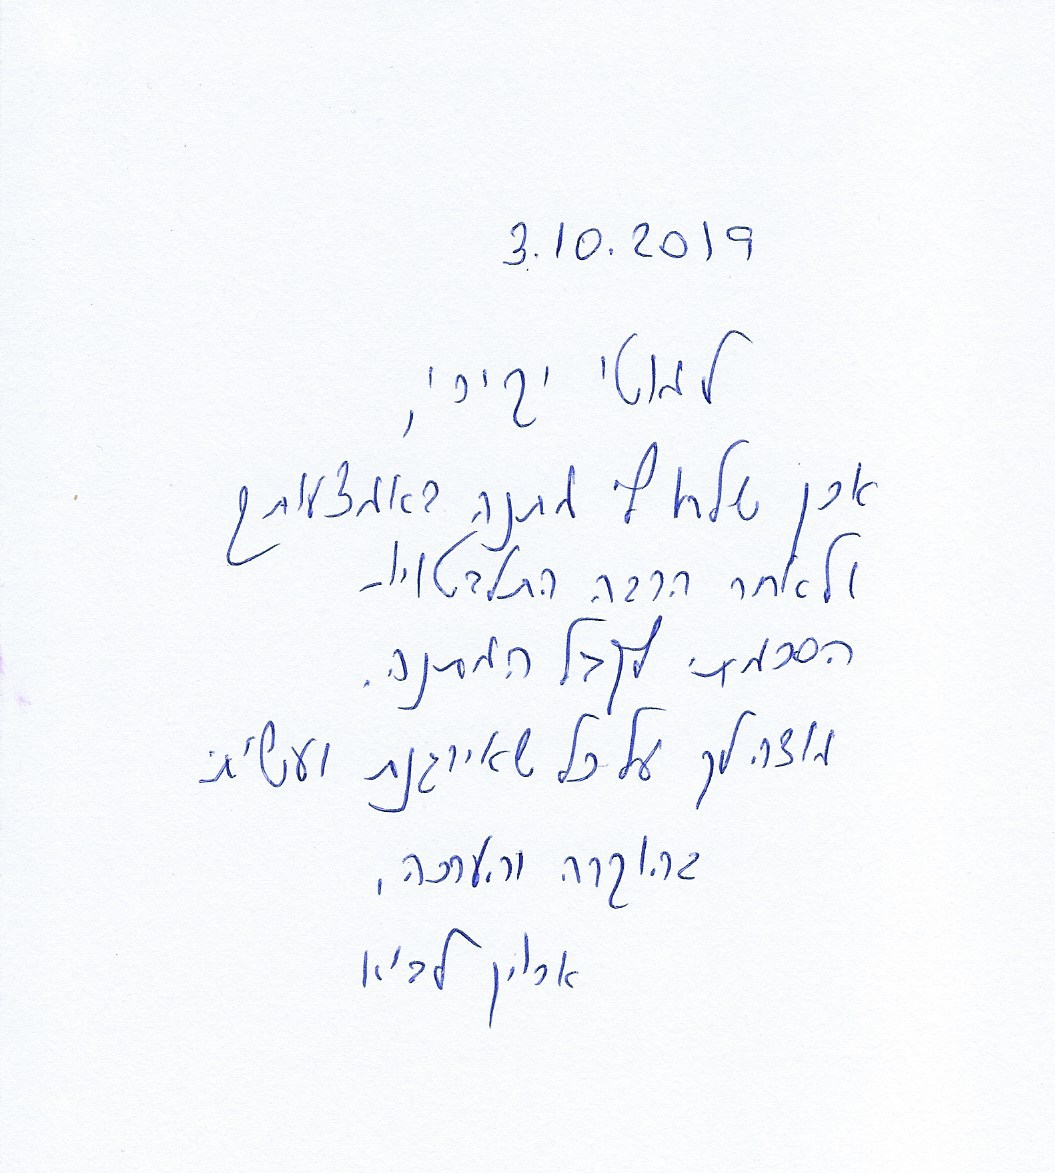 3.10.2019
למוטי יקירי,
אכן שלחו לי מתנה באמצעותך
ולאחר הרבה התלבטויות
הסכמתי לקבל המתנה.
מודה לך על כל שאירגנת ועשית
בהוקרה והערכה,
ארווין לביא